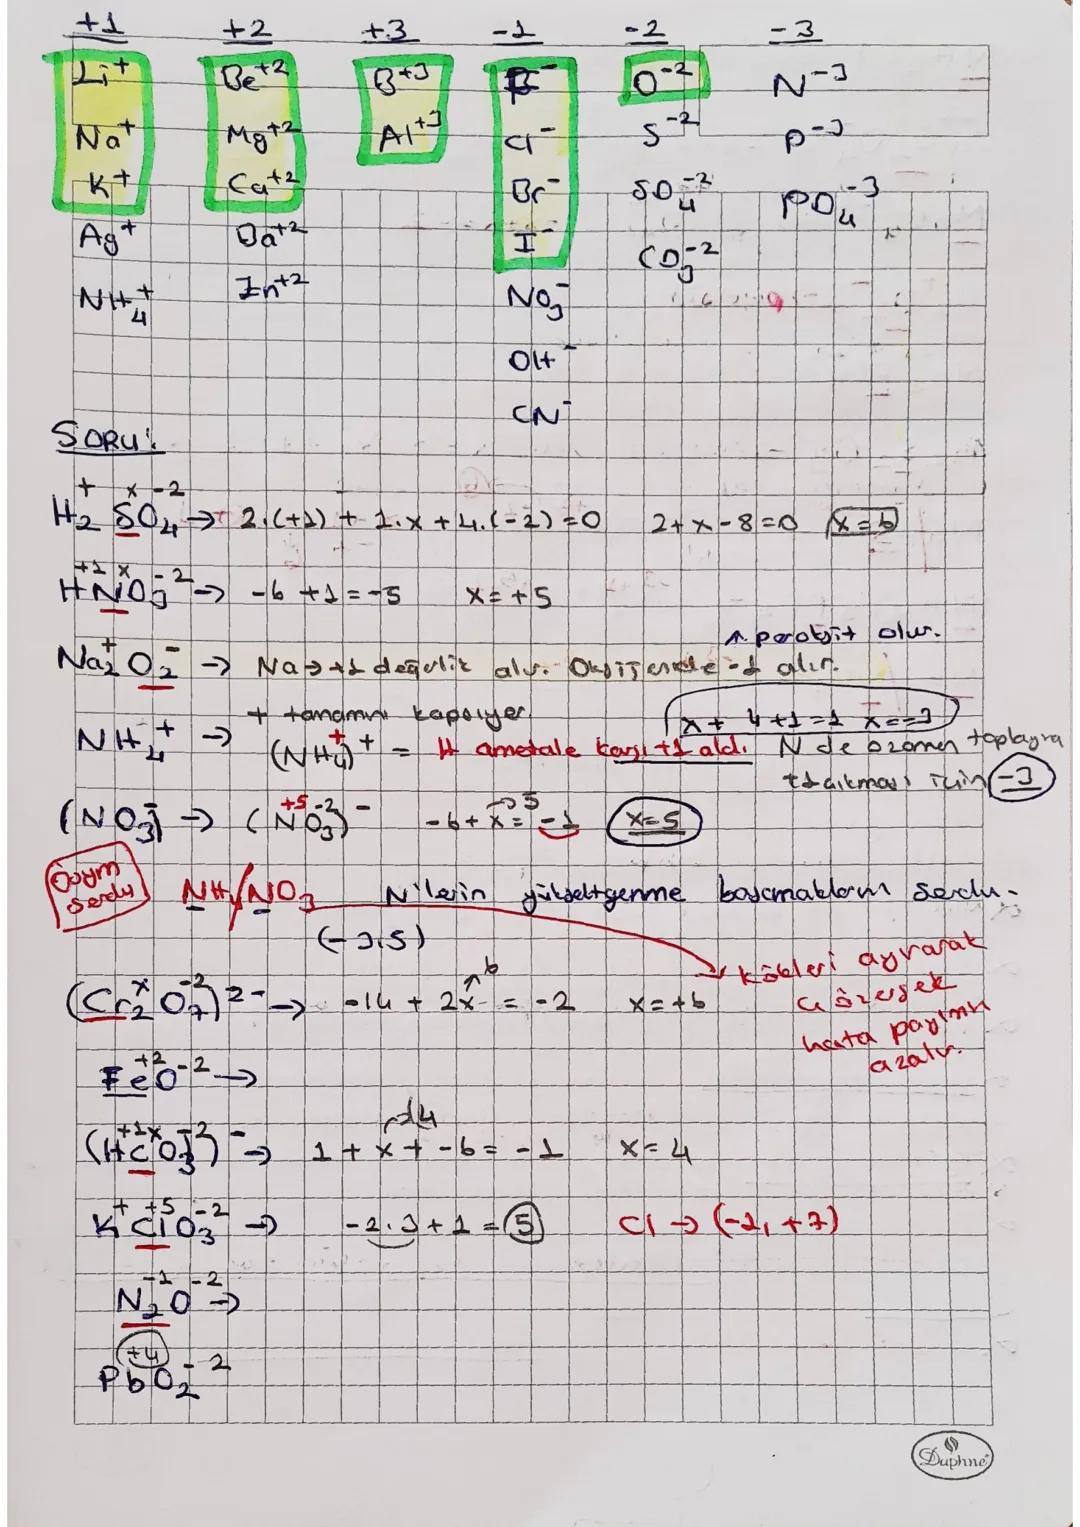 +1 +2 +3 -1 -2 -3
Li⁺ Be⁺² B⁺³ F⁻ O⁻² N⁻³
Na⁺ Mg⁺² Al⁺³ Cl⁻ S⁻² P⁻³
K⁺ Ca⁺² Br⁻ SO₄⁻² PO₄⁻³
Ag⁺ Ba⁺² I⁻ CO₃⁻²
NH₄⁺ Zn⁺² NO₃⁻
OH⁻
CN⁻
SORU:
+ x -2
H₂SO₄ → 2.(+1) + 1.x + 4.(-2) = 0 2+x-8=0 x=6
+1 x -2
HNO₃ → -6 +1 = -5 x=+5
↗ peroksit olur.
Na₂⁺O₂⁻ → Na → +1 değerlik alır. Oksijende -1 alır.
+ tamamını kapsıyor. x + 4+1=1 x=-3
NH₄⁺ → (NH₄)⁺ = H ametale karşı +1 aldı. N de o zaman toplayıra
+1 çıkması için -3
(NO₃⁻ → (N⁺⁵O₃⁻²)⁻ -6+x = -1 → 5 x=5
Ösym sordu NH₄/NO₃ N'lerin yükseltgenme basamaklarını sordu.
(-3,5)
Kökleri ayırarak
çözersek
hata payımı
azalır.
(Cr₂ˣO₇⁻²)²⁻ → -14 + 2x = -2 6 x=+6
Fe⁺²O⁻² →
(H⁺¹CˣO₃⁻²)⁻ → 1 + x + -6 = -1 → 4 x=4
K⁺Cl⁺⁵O₃⁻² → -2.3+1 = 5 Cl → (-1, +7)
N₂⁻¹O⁻² →
+4
PbO₂⁻²
Duphne